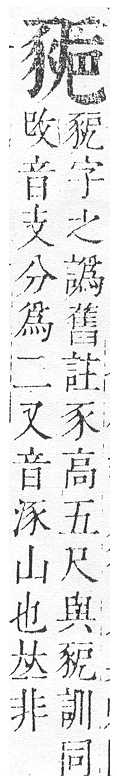 豟字之譌舊註豕高五尺與豟訓同
攺音支分爲二又音涿山也𠀤非